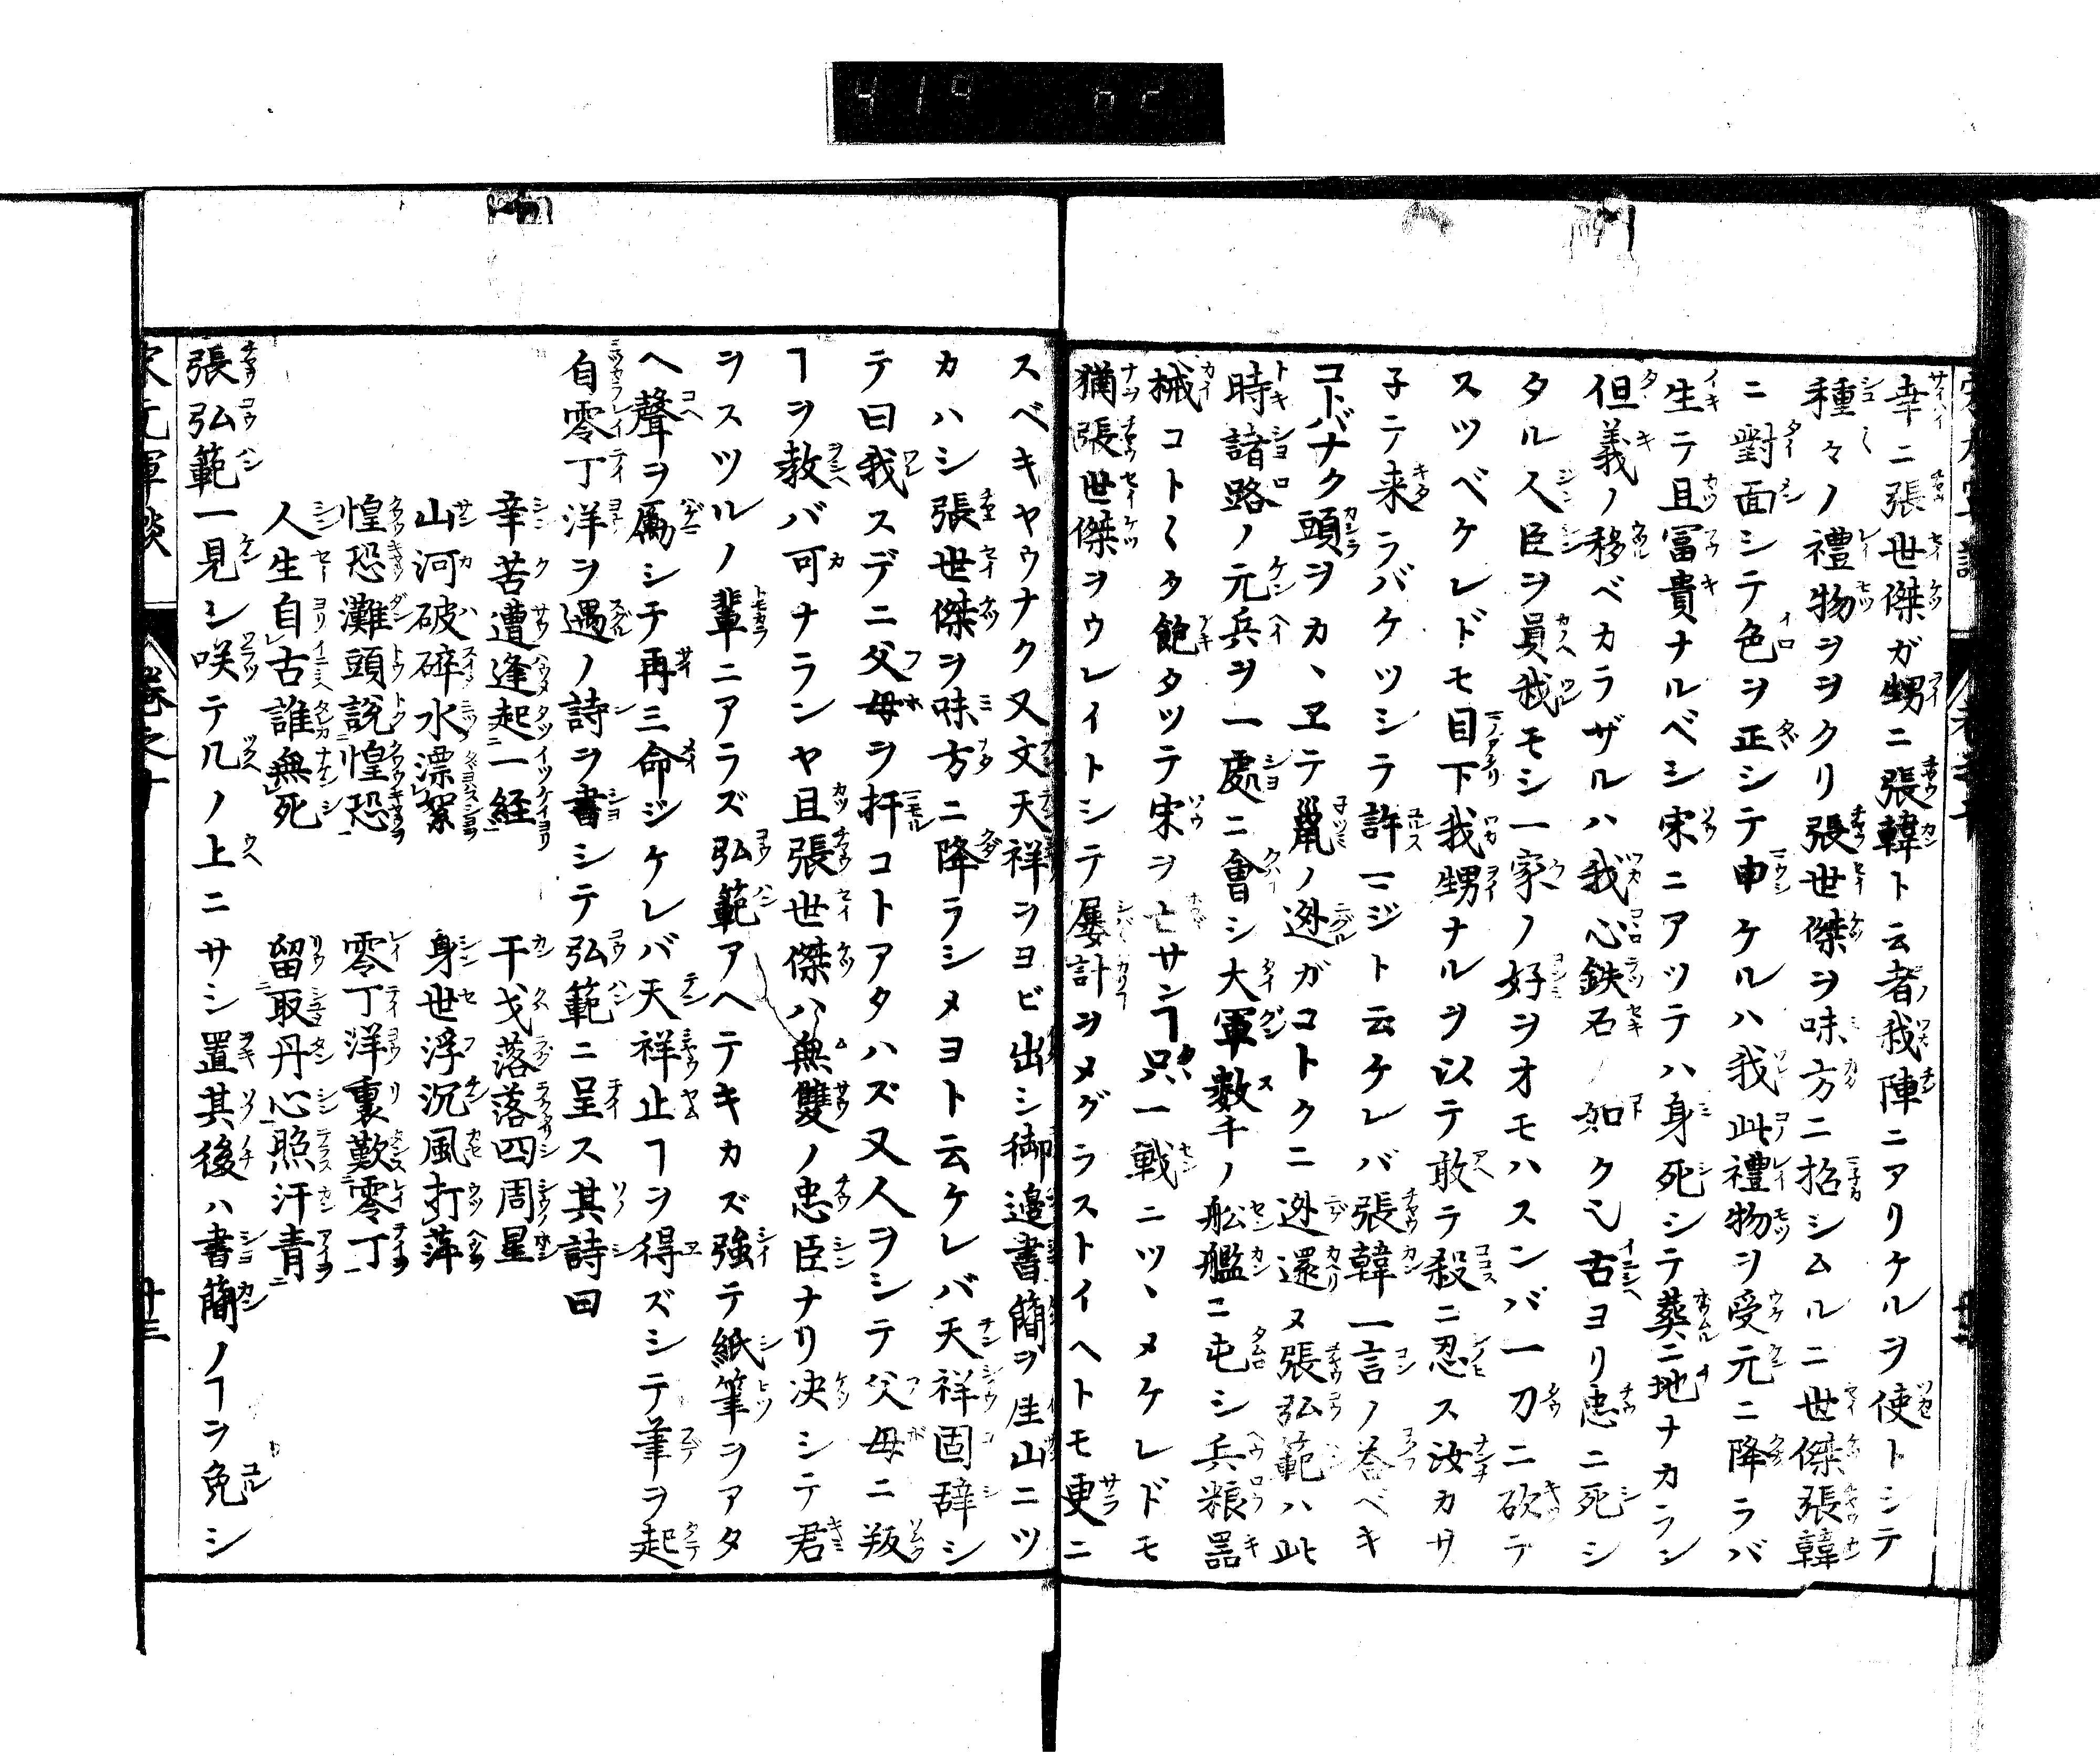 幸ニ張世傑ガ甥ニ張韓ト云者我陣ニアリケルヲ使トシテ
種々ノ禮物ヲヲクリ張世傑ヲ味方ニ招シムルニ世傑張韓
ニ對面シテ色ヲ正シテ申ケルハ我此禮物ヲ受元ニ降ラバ
生テ且冨貴ナルベシ宋ニアツテハ身死シテ葬ニ地ナカラン
但義ノ移ベカラザルハ我心鉄石ノ如クモ古ヨリ忠ニ死シ
タル人臣ヲ員我モシ一家ノ好ヲオモハスンバ一刀ニ砍テ
スツベケレドモ目下我甥ナルヲ以テ敢テ殺ニ忍ス汝カサ
子ニテ来ラバケツシテ許マジト云ケレバ張韓一言ノ荅ベキ
コトバナク頭ヲカヽヱテ鼠ノ迯ガコトクニ迯還ヌ張弘範ハ此
時諸路ノ元兵ヲ一處ニ會シ大軍数千ノ舩艦ニ屯シ兵粮器
械コト〱タ飽タツテ宋ヲ亡サンヿ只一戦ニツヽメケレドモ
猶張世傑ヲウレイトシテ屡計ヲメグラストイヘトモ更ニ
スベキヤウナク又文天祥ヲヨビ出シ御邉書簡ヲ厓山ニツ
カハシ張世傑ヲ味方ニ降ラシメヨト云ケレバ天祥固辞シ
テ曰我スデニ父母ヲ扞コトアタハズ又人ヲシテ父母ニ叛
ヿヲ教バ可ナランヤ且張世傑ハ無雙ノ忠臣ナリ决シテ君
ヲスツルノ輩ニアラズ弘範アヘテキカズ強テ紙筆ヲアタ
ヘ聲ヲ厲シテ再三命ジケレバ天祥止ヿヲ得ズシテ筆ヲ起
自零丁洋ヲ過ノ詩ヲ書シテ弘範ニ呈ス其詩曰
辛苦遭逢起一経 干戈落落四周星
山河破碎水漂絮 身世浮沉風打萍
惶恐灘頭説惶恐 零丁洋裏歎零丁
人生自古誰無死 留取丹心照汗青
張弘範一見シ咲テ几ノ上ニサシ置其後ハ書簡ノヿヲ免シ
宋元軍談 卷之十 廿三